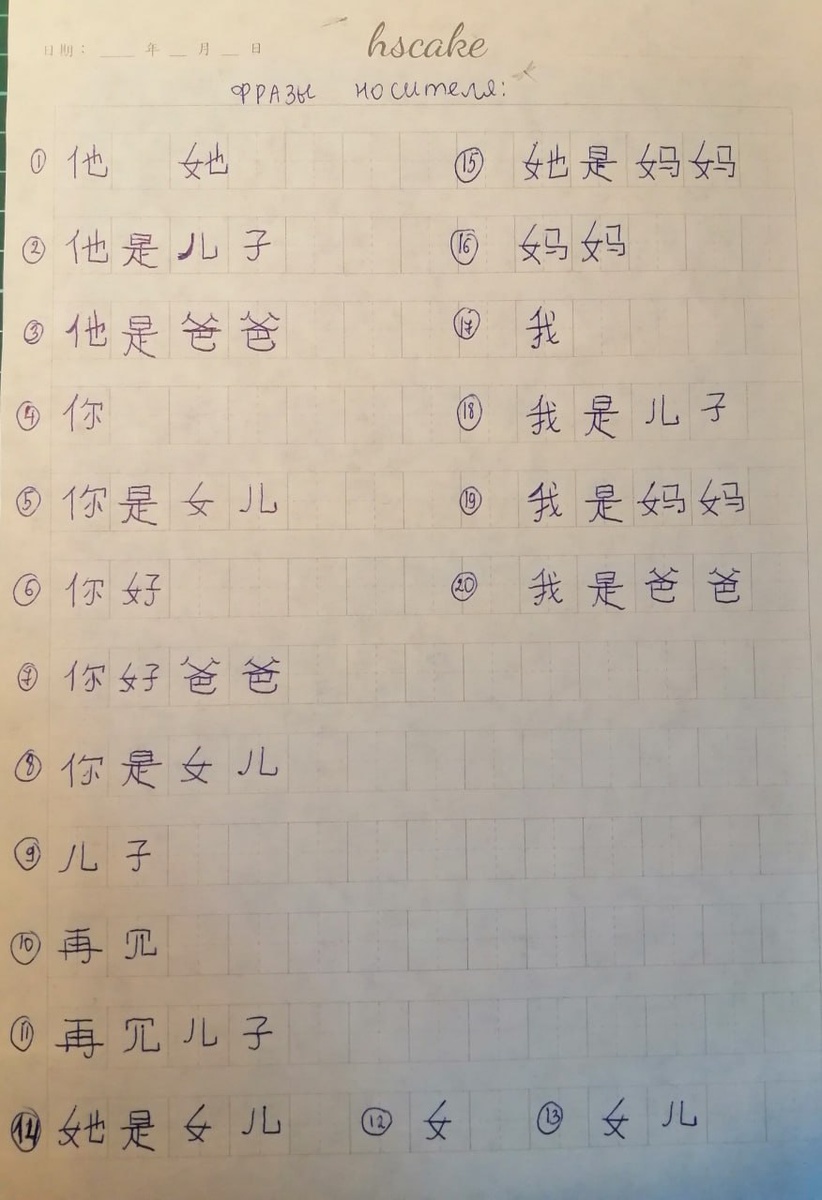 日期: 年 月 日
hscake
ФРАЗЫ носителя:
① 他 她
② 他是儿子
③ 他是爸爸
④ 你
⑤ 你是女儿
⑥ 你好
⑦ 你好爸爸
⑧ 你是女儿
⑨ 儿子
⑩ 再见
⑪ 再见儿子
⑭ 她是女儿 ⑫ 女 ⑬ 女儿
⑮ 她是妈妈
⑯ 妈妈
⑰ 我
⑱ 我是儿子
⑲ 我是妈妈
⑳ 我是爸爸